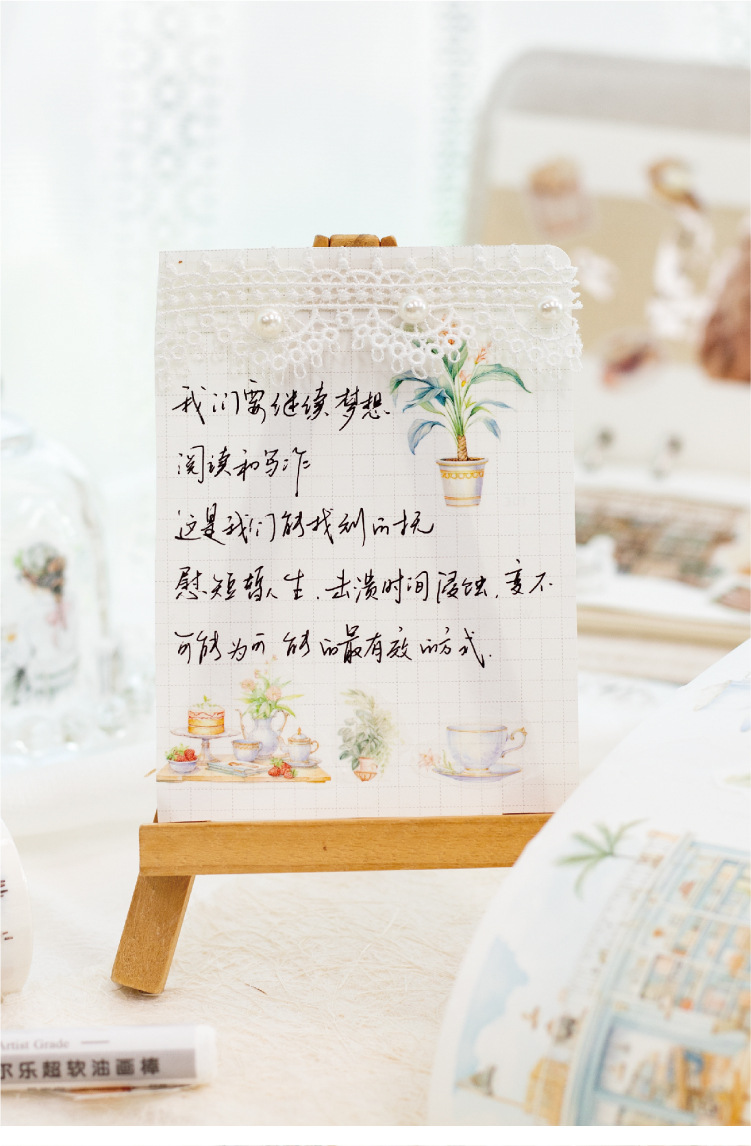 我们要继续梦想
阅读和写作
这是我们能找到的抚
慰短暂人生,击溃时间侵蚀,变不
可能为可能的最有效的方式.
Artist Grade
尔乐超软油画棒